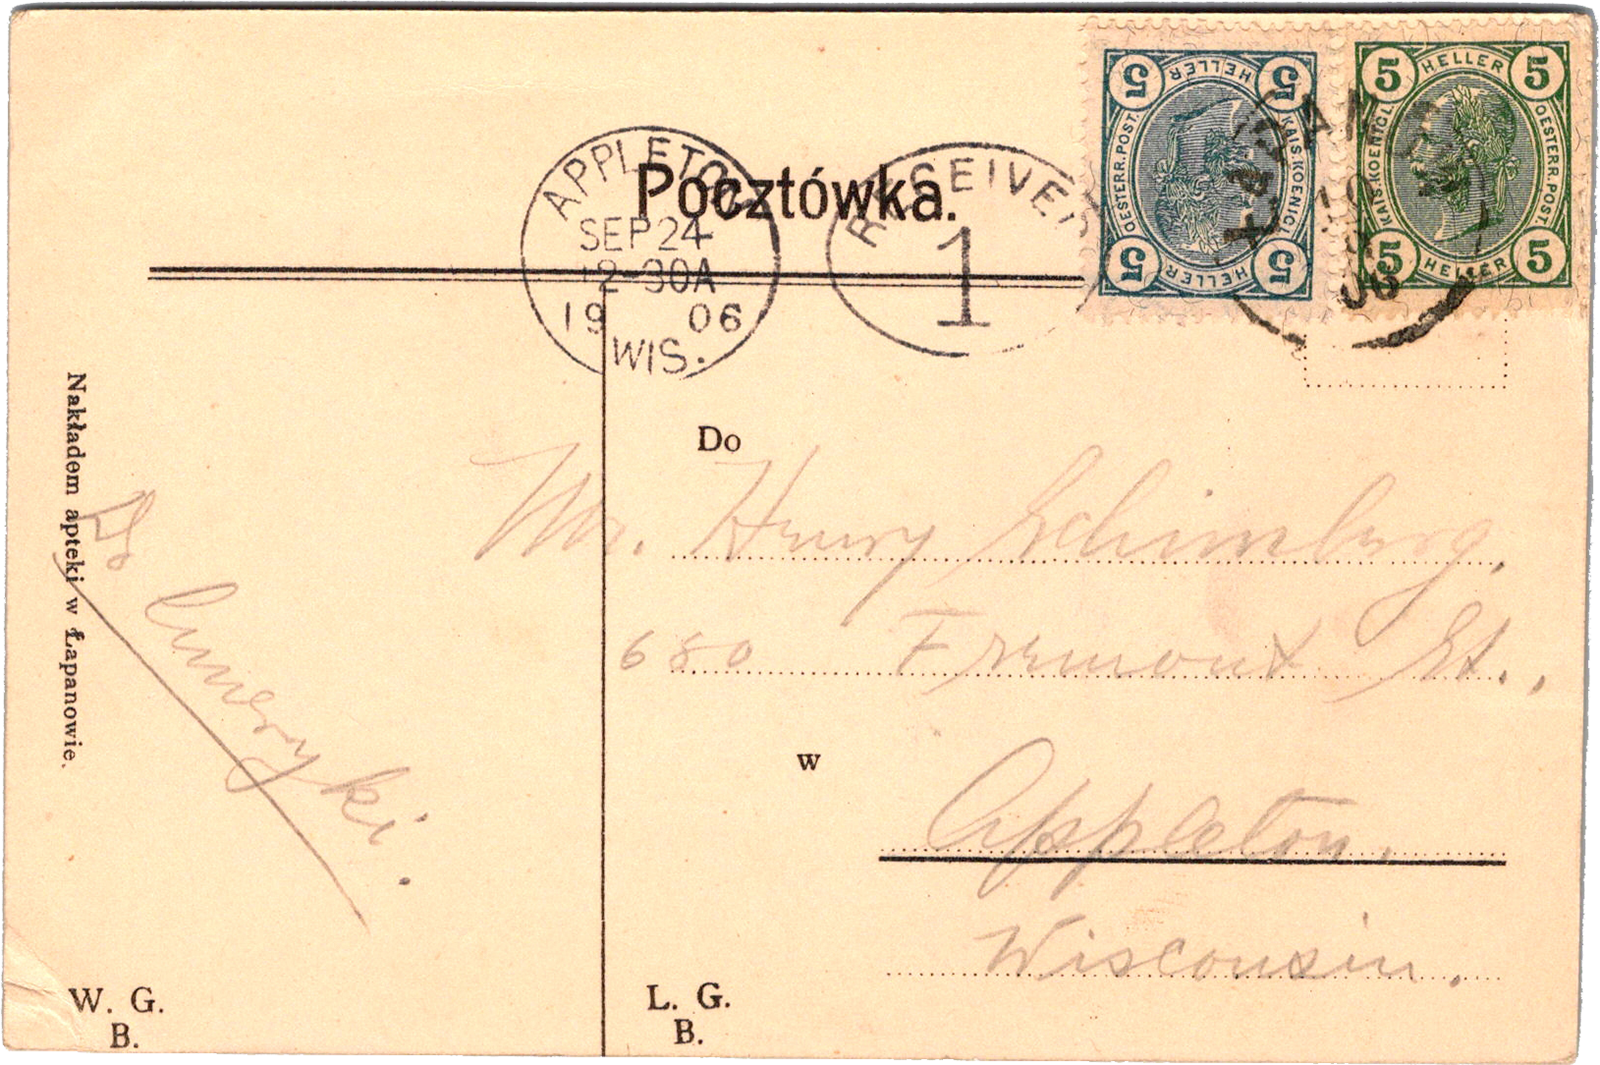 Pocztówka.
APPLETON
SEP 24
12-30A
1906
WIS.
RECEIVED
1
5 HELLER 5
KAIS. KOENIGL.
OESTERR. POST.
5 HELLER 5
5 HELLER 5
KAIS. KOENIGL.
OESTERR. POST.
5 HELLER 5
ŁAPANÓW
06
Nakładem apteki w Łapanowie.
Do Ameryki.
Do
Mr. Henry Schimberg.
680 Fremont St.,
w
Appleton.
Wisconsin.
W. G.
B.
L. G.
B.